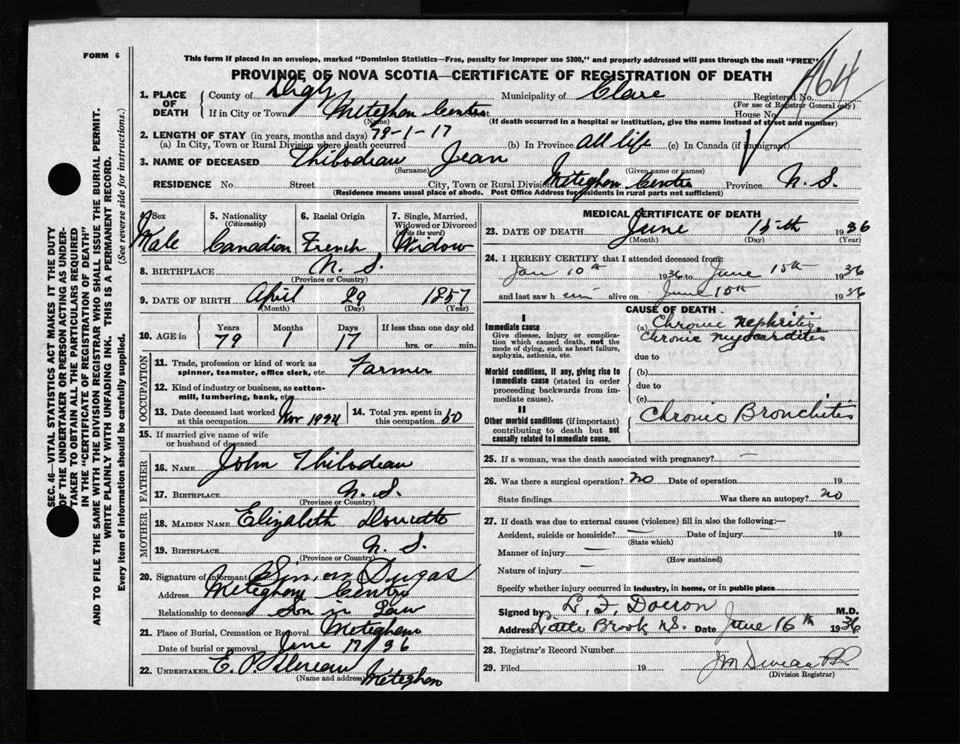 FORM 6
This form if placed in an envelope, marked "Dominion Statistics—Free, penalty for improper use $300," and properly addressed will pass through the mail "FREE"
PROVINCE OF NOVA SCOTIA—CERTIFICATE OF REGISTRATION OF DEATH
464
1. PLACE OF DEATH
County of Digby Municipality of Clare Registered No.
(For use of Registrar General only)
If in City or Town Meteghan Centre House No.
(Name) (If death occurred in a hospital or institution, give the name instead of street and number)
2. LENGTH OF STAY (in years, months and days) 79-1-17
(a) In City, Town or Rural Division where death occurred (b) In Province All life (c) In Canada (if immigrant)
3. NAME OF DECEASED Thibodeau Jean
(Surname) (Given name or names)
RESIDENCE No. Street City, Town or Rural Division Meteghan Centre Province N. S.
(Residence means usual place of abode. Post Office Address for residents in rural parts not sufficient)
SEC. 46—VITAL STATISTICS ACT MAKES IT THE DUTY
OF THE UNDERTAKER OR PERSON ACTING AS UNDER-
TAKER TO OBTAIN ALL THE PARTICULARS REQUIRED
IN THE "CERTIFICATE OF REGISTRATION OF DEATH"
AND TO FILE THE SAME WITH THE DIVISION REGISTRAR WHO SHALL ISSUE THE BURIAL PERMIT.
WRITE PLAINLY WITH UNFADING INK. THIS IS A PERMANENT RECORD.
Every item of information should be carefully supplied. (See reverse side for instructions.)
4. Sex Male
5. Nationality (Citizenship) Canadian
6. Racial Origin French
7. Single, Married, Widowed or Divorced (write the word) Widow
8. BIRTHPLACE N. S.
(Province or Country)
9. DATE OF BIRTH April 29 1857
(Month) (Day) (Year)
10. AGE in Years Months Days If less than one day old
79 1 17 hrs. or min.
OCCUPATION
11. Trade, profession or kind of work as
spinner, teamster, office clerk, etc. Farmer
12. Kind of industry or business, as cotton-
mill, lumbering, bank, etc.
13. Date deceased last worked
at this occupation Nov 1924
14. Total yrs. spent in
this occupation 50
15. If married give name of wife
or husband of deceased
FATHER
16. NAME John Thibodeau
17. BIRTHPLACE N. S.
(Province or Country)
MOTHER
18. MAIDEN NAME Elizabeth Doucette
19. BIRTHPLACE N. S.
(Province or Country)
20. Signature of informant Simon Dugas
Address Meteghan Centre
Relationship to deceased Son in Law
21. Place of Burial, Cremation or Removal Meteghan
Date of burial or removal June 17
22. UNDERTAKER E.
(Name and address) Meteghan
MEDICAL CERTIFICATE OF DEATH
23. DATE OF DEATH June 15th 1936
(Month) (Day) (Year)
24. I HEREBY CERTIFY that I attended deceased from:
Jan 10th 1936 to June 15th 1936
and last saw him alive on June 15th 1936
CAUSE OF DEATH
I
Immediate cause
Give disease, injury or complica-
tion which caused death, not the
mode of dying, such as heart failure,
asphyxia, asthenia, etc.
(a) Chronic Nephritis
Chronic Myocarditis
due to
Morbid conditions, if any, giving rise to
immediate cause (stated in order
proceeding backwards from im-
mediate cause).
(b)
due to
(c)
II
Other morbid conditions (if important)
contributing to death but not
causally related to immediate cause.
Chronic Bronchitis
25. If a woman, was the death associated with pregnancy? —
26. Was there a surgical operation? no Date of operation 19
State findings Was there an autopsy? no
27. If death was due to external causes (violence) fill in also the following:—
Accident, suicide or homicide? — Date of injury — 19
(State which)
Manner of injury —
(How sustained)
Nature of injury —
Specify whether injury occurred in industry, in home, or in public place
Signed by L. F. Doiron M.D.
Address Little Brook N.S. Date June 16th 1936
28. Registrar's Record Number
29. Filed 19
(Division Registrar)